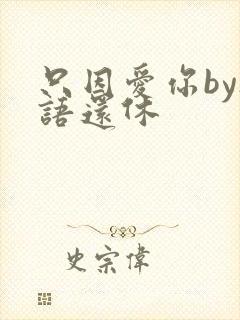 只因愛你by
語還休
史宗偉